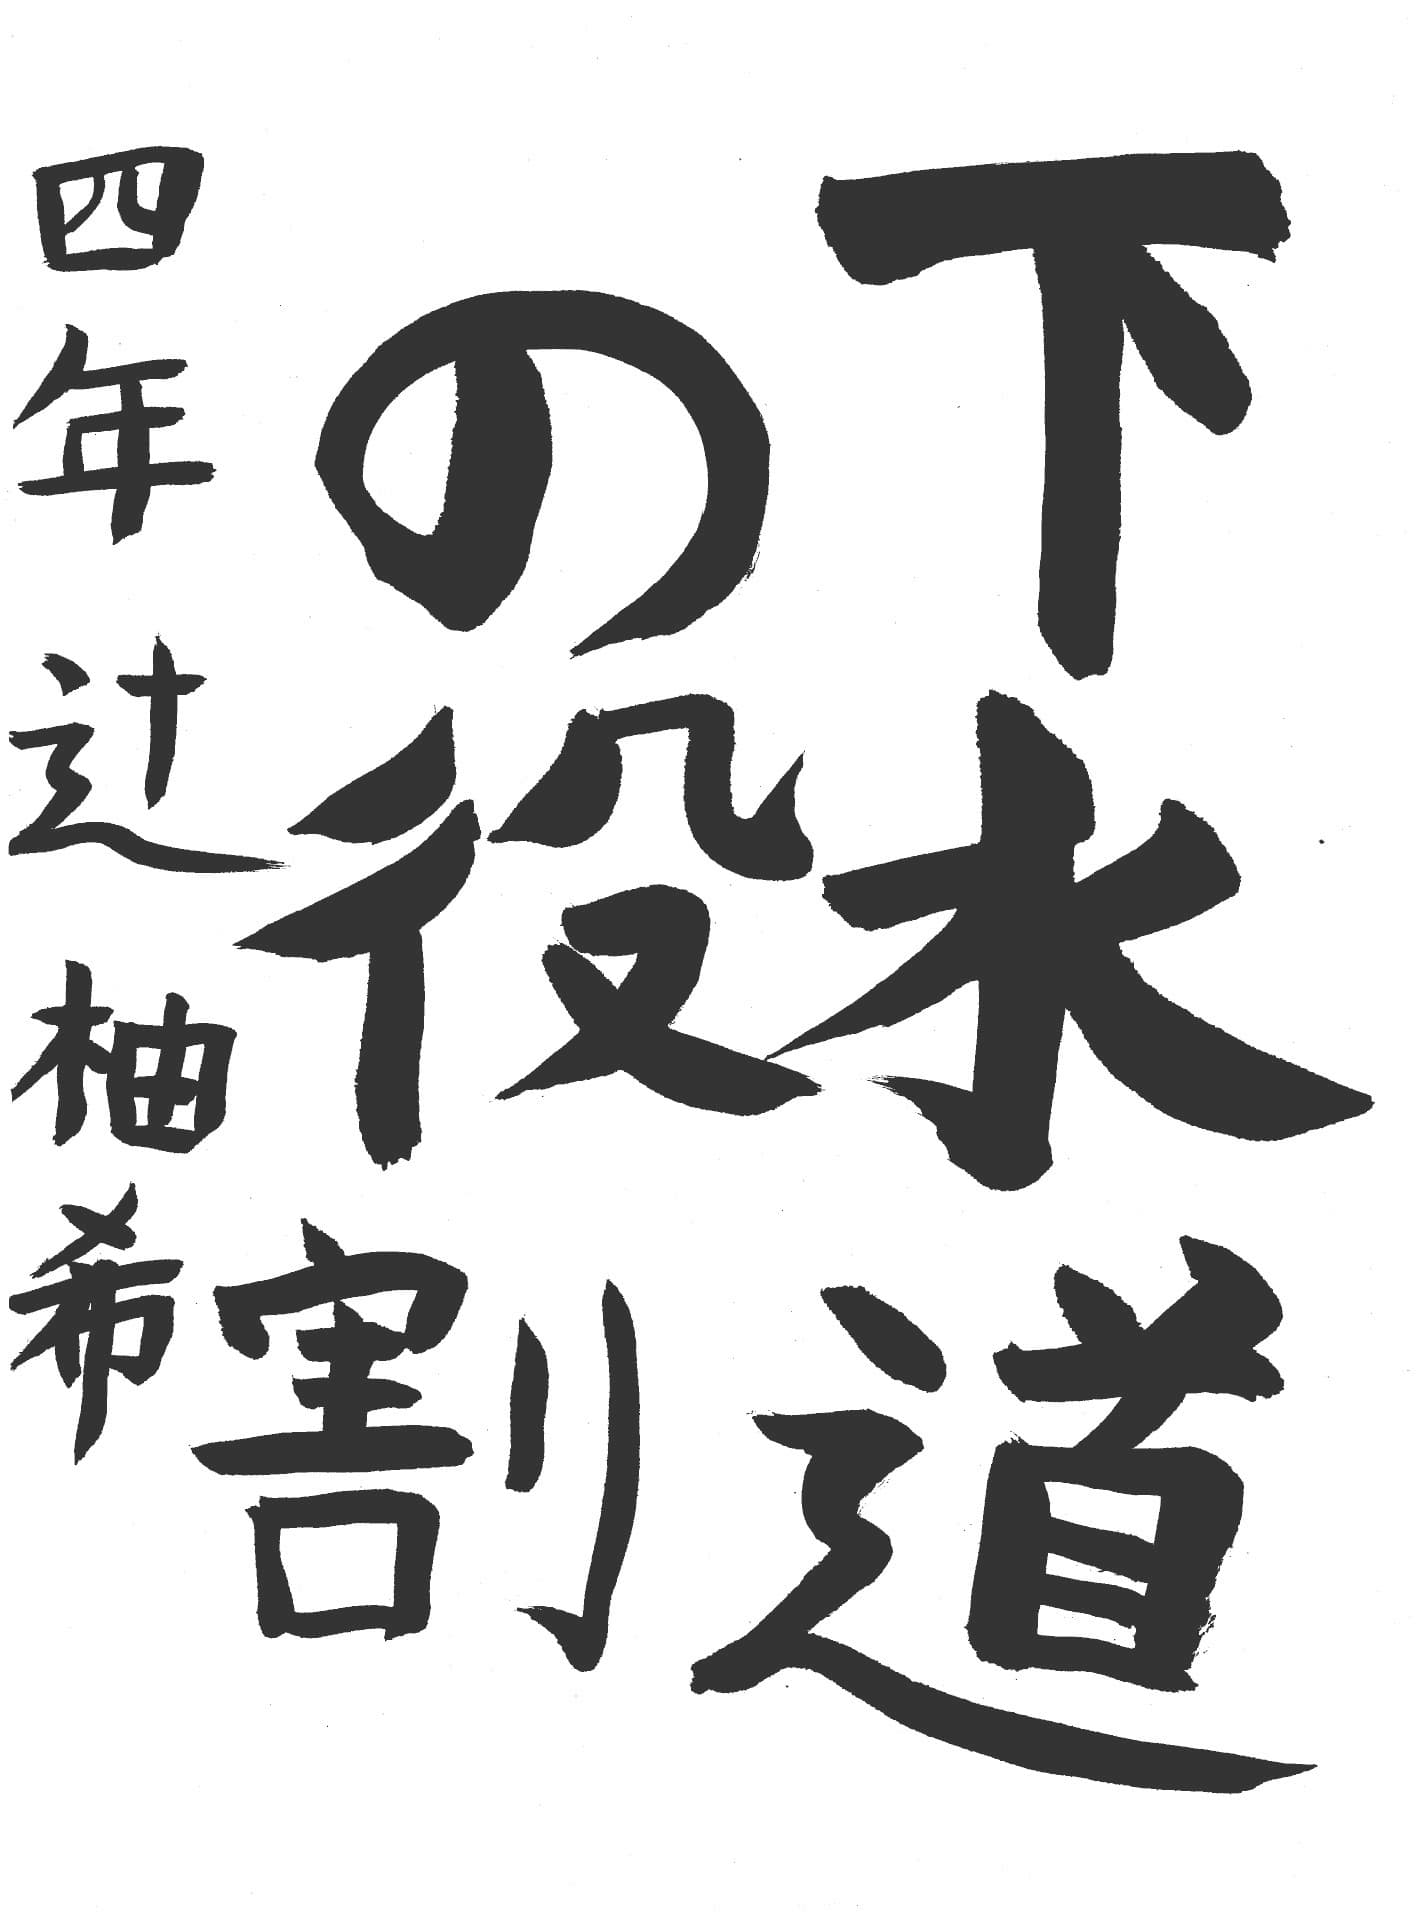 下水道
の役割
四年 辻 柚希